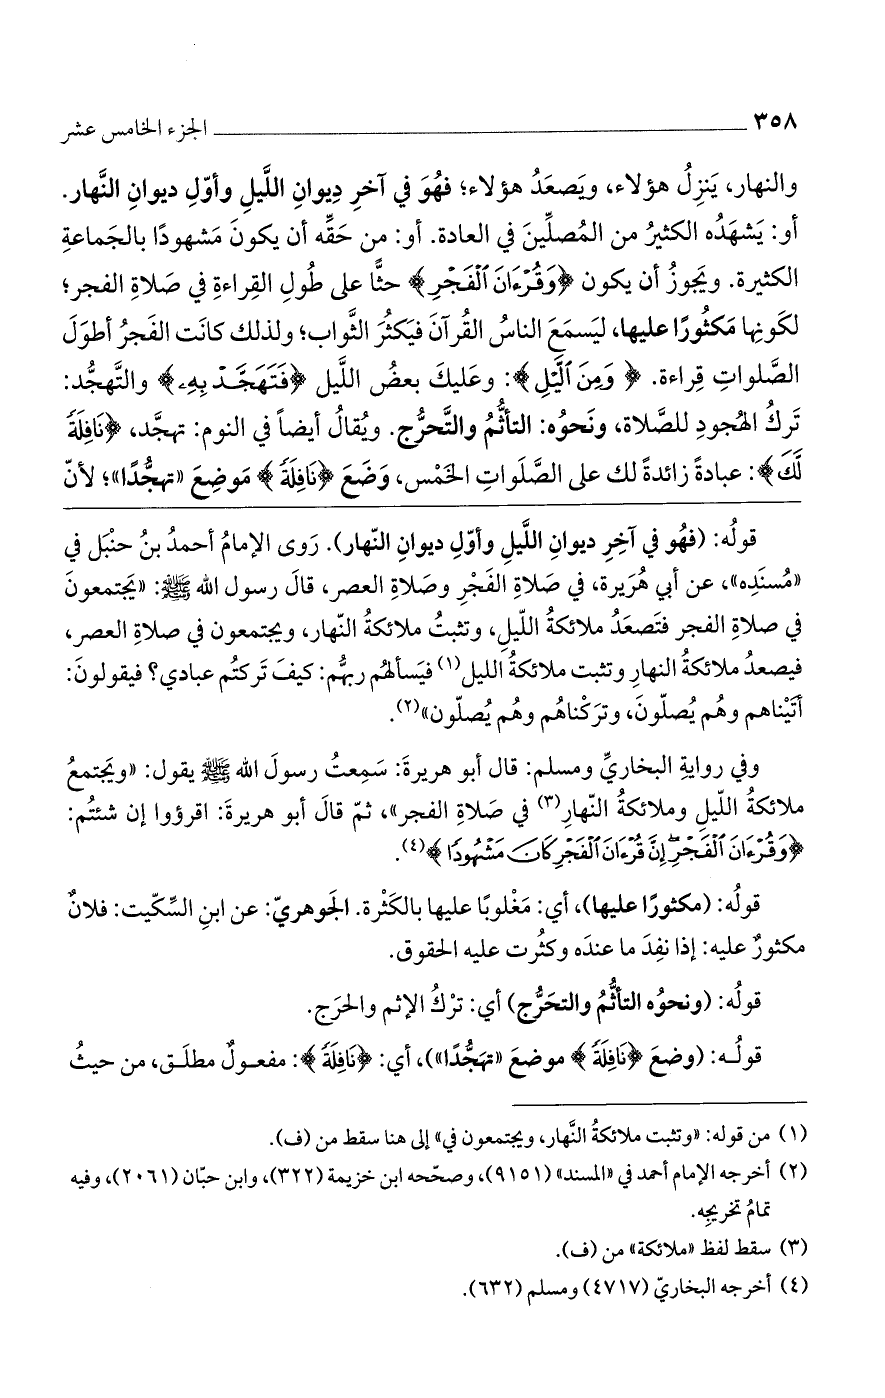 ٣٥٨ الجزء الخامس عشر
والنهار، يَنزِلُ هؤلاء، ويَصعَدُ هؤلاء؛ فهُوَ في آخرِ دِيوانِ اللَّيلِ وأوّلِ ديوانِ النَّهار.
أو: يَشهَدُه الكثيرُ من المُصلِّينَ في العادة. أو: من حَقِّه أن يكونَ مَشهودًا بالجَماعةِ
الكثيرة. ويَجوزُ أن يكون ﴿وَقُرْءَانَ ٱلْفَجْرِ﴾ حثًّا على طُولِ القِراءةِ في صَلاةِ الفجر؛
لكَونِها مَكثُورًا عليها، ليَسمَعَ الناسُ القُرآنَ فيَكثُرَ الثَّواب؛ ولذلك كانَت الفَجرُ أطوَلَ
الصَّلواتِ قِراءة. ﴿وَمِنَ ٱلَّيْلِ﴾: وعَليكَ بعضُ اللَّيل ﴿فَتَهَجَّدْ بِهِۦ﴾ والتَّهجُّد:
تَركُ الهُجودِ للصَّلاة، ونَحوُه: التأثُّمُ والتَّحرُّج. ويُقالُ أيضاً في النوم: تهجَّد، ﴿نَافِلَةً
لَّكَ﴾: عبادةً زائدةً لك على الصَّلَواتِ الخَمْس، وَضَعَ ﴿نَافِلَةً﴾ مَوضِعَ «تهجُّدًا»؛ لأنّ
قولُه: (فهُو في آخِرِ ديوانِ اللَّيلِ وأوّلِ ديوانِ النّهار). رَوى الإمامُ أحمدُ بنُ حنْبَل في
«مُسنَدِه»، عن أبي هُرَيرة، في صَلاةِ الفَجْرِ وصَلاةِ العصر، قالَ رسول الله ﷺ: «يَجتمعونَ
في صلاةِ الفجر فتَصعَدُ ملائكةُ اللَّيل، وتثبتُ ملائكةُ النّهار، ويجتمعون في صلاةِ العصر،
فيصعدُ ملائكةُ النهارِ وتثبت ملائكةُ الليل(١) فيَسألهُم ربهُّم: كيفَ تَركتُم عبادي؟ فيقولونَ:
أتَيْناهم وهُم يُصلّونَ، وترَكْناهُم وهُم يُصلّون»(٢).
وفي روايةِ البخاريِّ ومسلم: قال أبو هريرةَ: سَمِعتُ رسولَ الله ﷺ يقول: «ويَجتمعُ
ملائكةُ اللَّيلِ وملائكةُ النّهارِ(٣) في صَلاةِ الفجر»، ثمّ قالَ أبو هريرةَ: اقرؤوا إن شئتُم:
﴿وَقُرْءَانَ ٱلْفَجْرِ ۖ إِنَّ قُرْءَانَ ٱلْفَجْرِ كَانَ مَشْهُودًا﴾(٤).
قولُه: (مكثورًا عليها)، أي: مَغْلوبًا عليها بالكَثْرة. الجَوهريّ: عن ابنِ السِّكّيت: فلانٌ
مكثورٌ عليه: إذا نفِدَ ما عندَه وكثُرت عليه الحقوق.
قولُه: (ونحوُه التأثُّمُ والتحَرُّج) أي: ترْكُ الإثم والحرَج.
قولُه: (وضعَ ﴿نَافِلَةً﴾ موضعَ «تهَجُّدًا»)، أي: ﴿نَافِلَةً﴾: مفعولٌ مطلَق، من حيثُ
(١) من قوله: «وتثبت ملائكةُ النَّهار، ويجتمعون في» إلى هنا سقط من (ف).
(٢) أخرجه الإمام أحمد في «المسند» (٩١٥١)، وصحّحه ابن خزيمة (٣٢٢)، وابن حبّان (٢٠٦١)، وفيه
تمامُ تخريجِه.
(٣) سقط لفظ «ملائكة» من (ف).
(٤) أخرجه البخاريّ (٤٧١٧) ومسلم (٦٣٢).